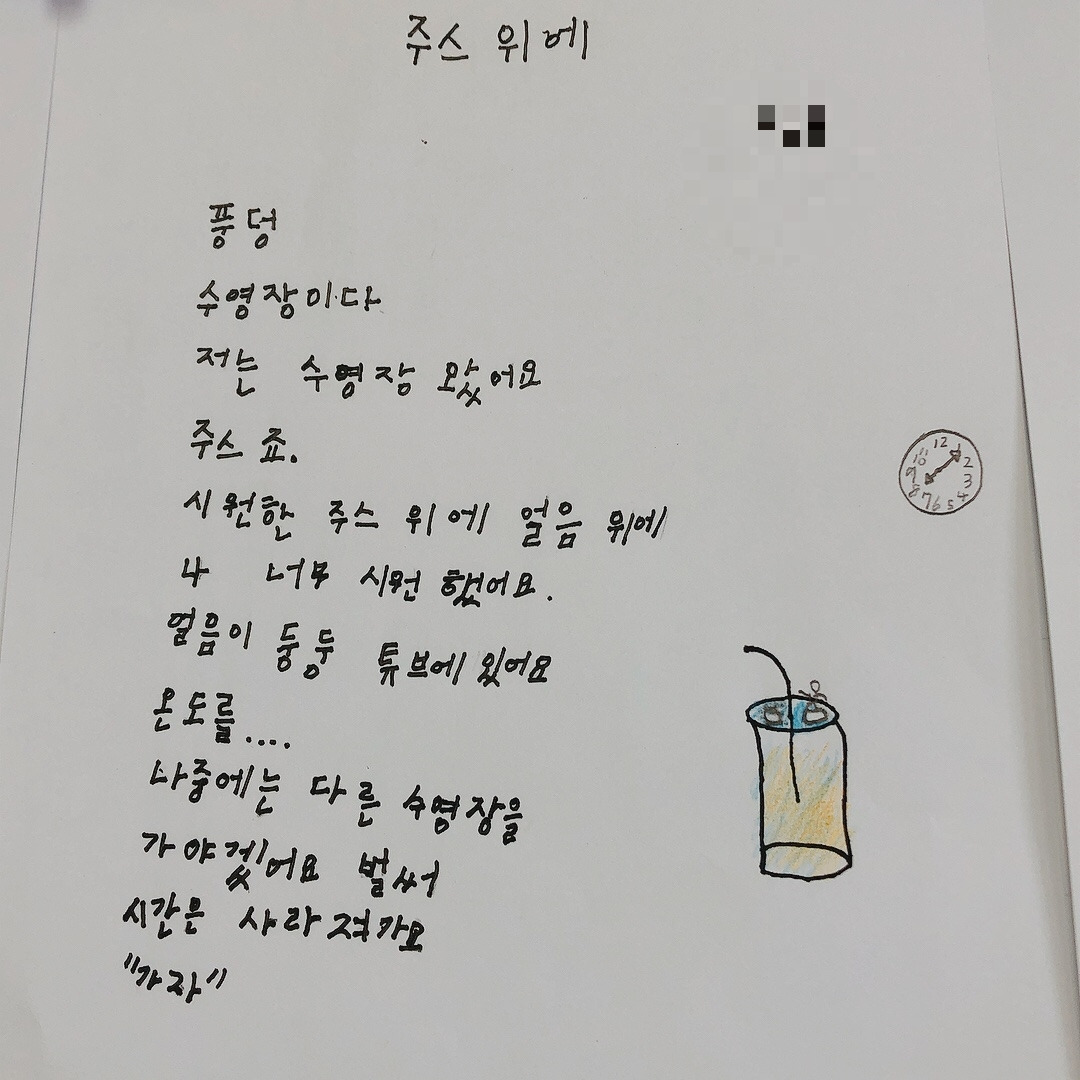 주스 위에
풍덩
수영장이다
저는 수영장 왔어요
주스 죠.
시원한 주스 위에 얼음 위에
나 너무 시원 했어요.
얼음이 둥둥 튜브에 있어요
온도를....
나중에는 다른 수영장을
가야겠어요 벌써
시간은 사라져가요
"가자"
12
1
2
3
4
5
6
7
8
9
10
11